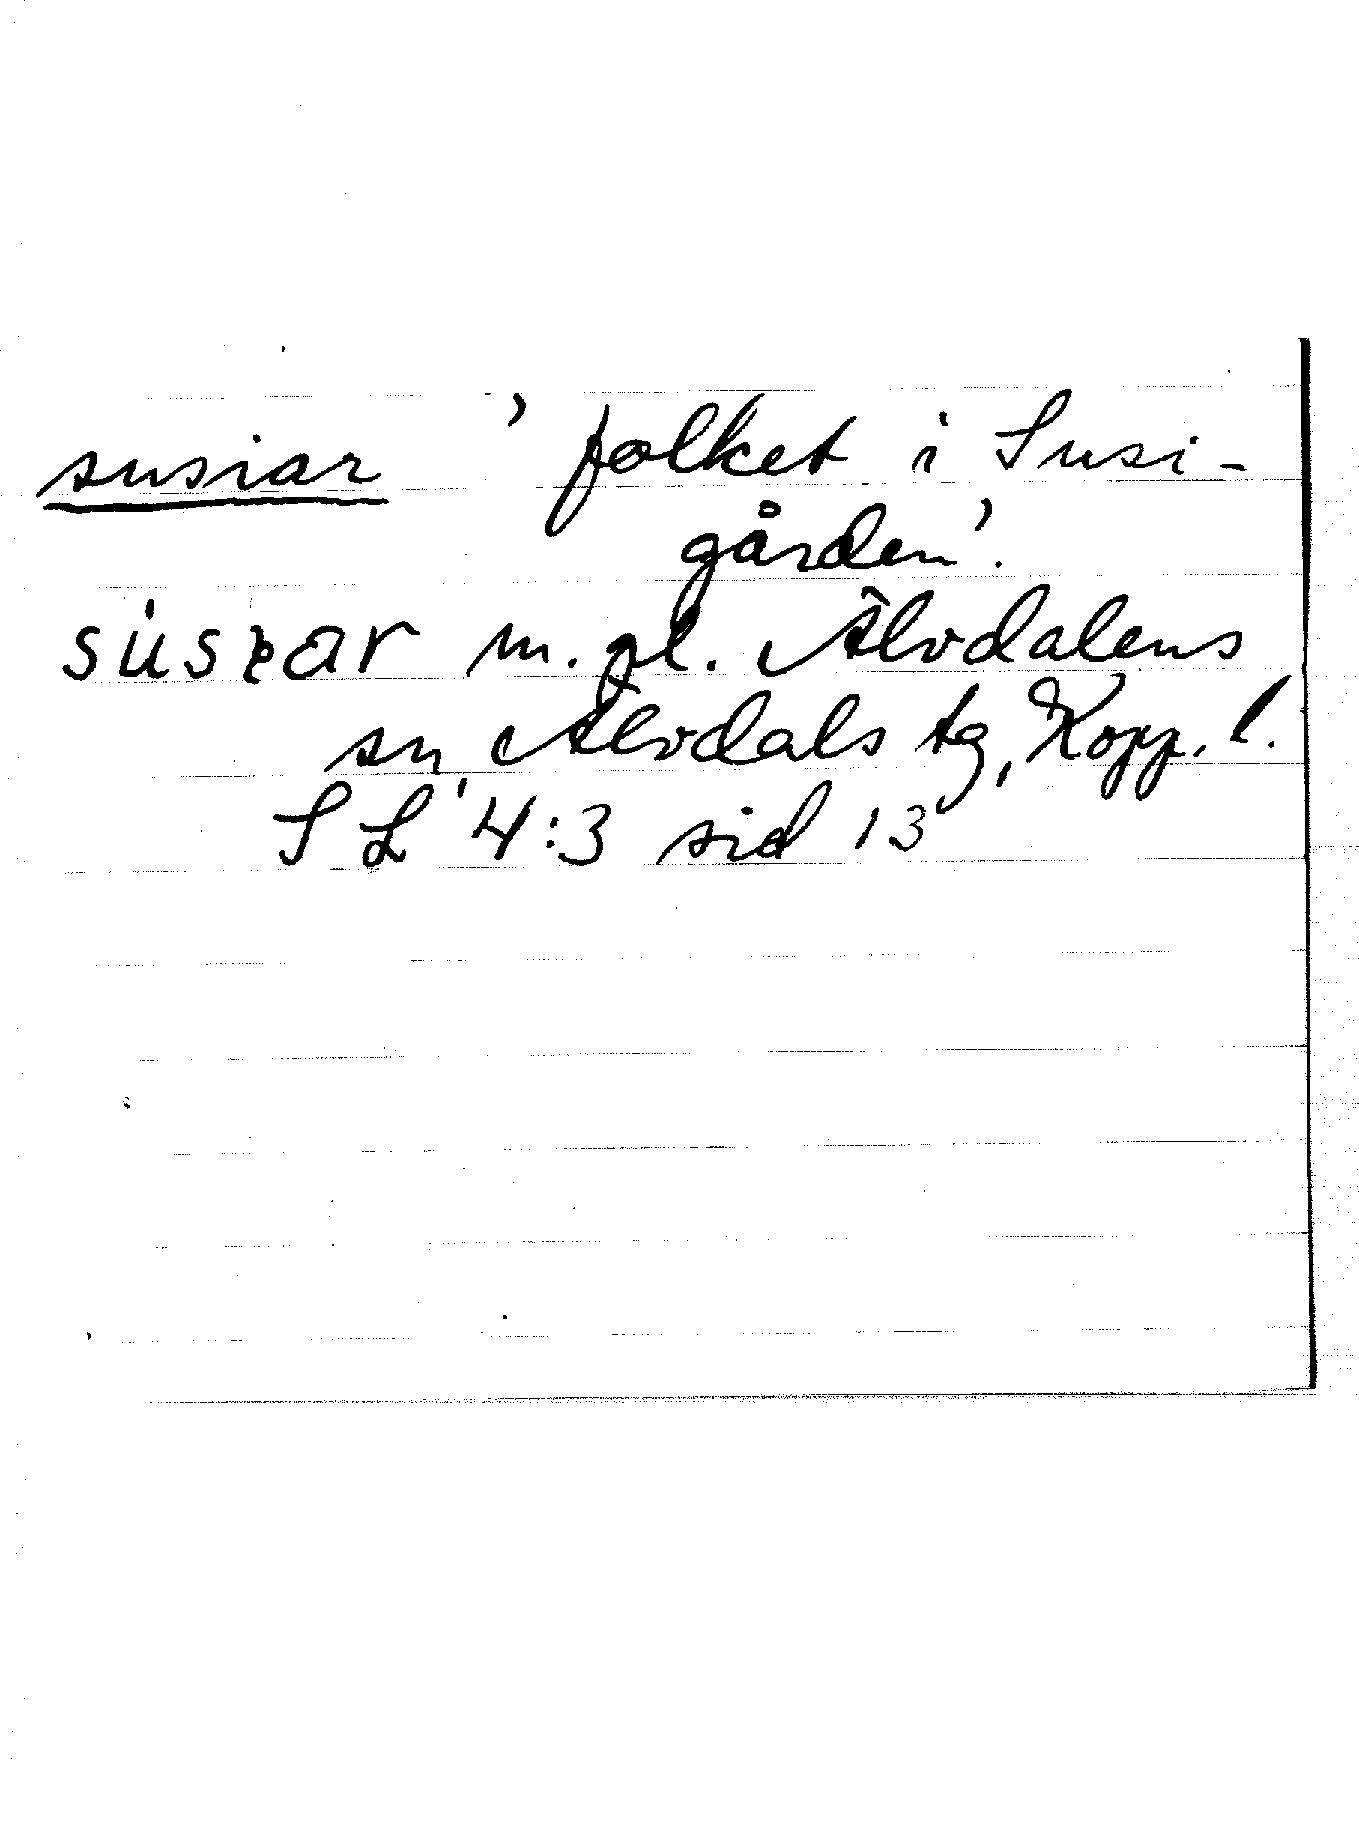 susiar 'folket i Susi-
gården'.
m. pl. Älvdalens
sn, Älvdals tg, Kopp. l.
SL 4:3 sid 13